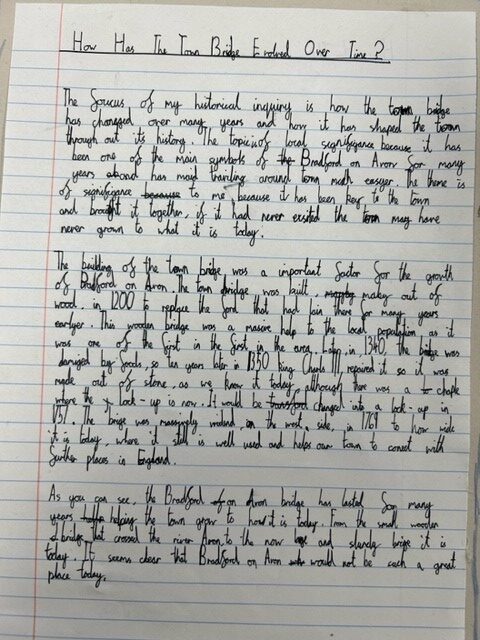 How Has The Town Bridge Evolved Over Time?
The foucus of my historical inquiry is how the town bridge
has changed over many years and how it has shaped the town
through out its history. The topic is of local significance because it has
been one of the main symbols of the Bradford on Avon for many
years and has made traveling around town much easyer. The theme is
of significance because to me because it has been key to the town
and brought it together, if it had never exsited the town may have
never grown to what it is today.
The building of the town bridge was a important factor for the growth
of Bradford on Avon. The town bridge was built making out of
wood in 1200 to replace the ford that had lain there for many years
earlyer. This wooden bridge was a massive help to the local population as it
was one of the first in the first in the area. Later, in 1340, the bridge was
damaged by floods, so ten years later in 1350 King Charles III repaired it so it was
made out of stone, as we know it today, although there was a chaple
where the lock-up is now. It would be transford changed into a lock-up in
1757. The brige was massingly widend, on the west, side, in 1769 to how wide
it is today, where it still is well used and helps our town to conect with
further places in England.
As you can see, the Bradford of on Avon bridge has lasted for many
years helping the town grow to how it is today. From the small wooden
bridge that crossed the river Avon, to the now big and sturdy brige it is
today. It seems clear that Bradford on Avon would not be such a great
place today.